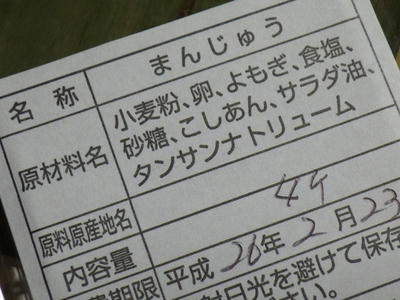 名称 まんじゅう
原材料名 小麦粉、卵、よもぎ、食塩、
砂糖、こしあん、サラダ油、
タンサンナトリューム
原料原産地名
内容量 4ケ
期限 平成 26年 2月 23
射日光を避けて保存